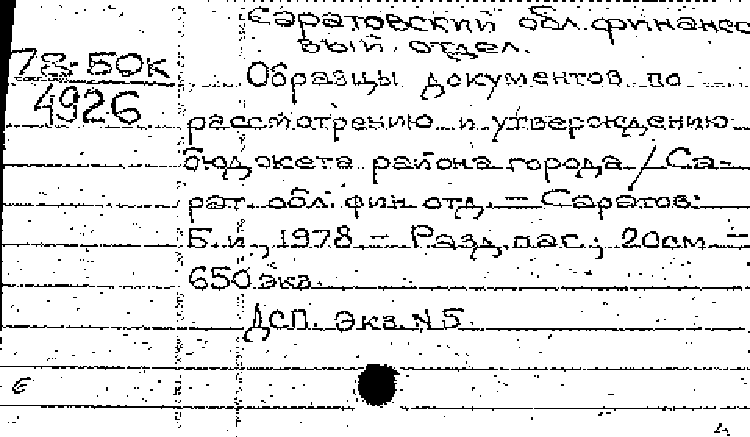 Саратовский обл. финанес
вый. отдел.
78-50к
4926
Образцы документов по
рассмотрению и утверждению
бюджета района города / Са-
рат. обл. фин. отд. – Саратов:
Б.и., 1978. – Разд. паг.; 20см –
650 экз.
ДСП. Экз. N 5.